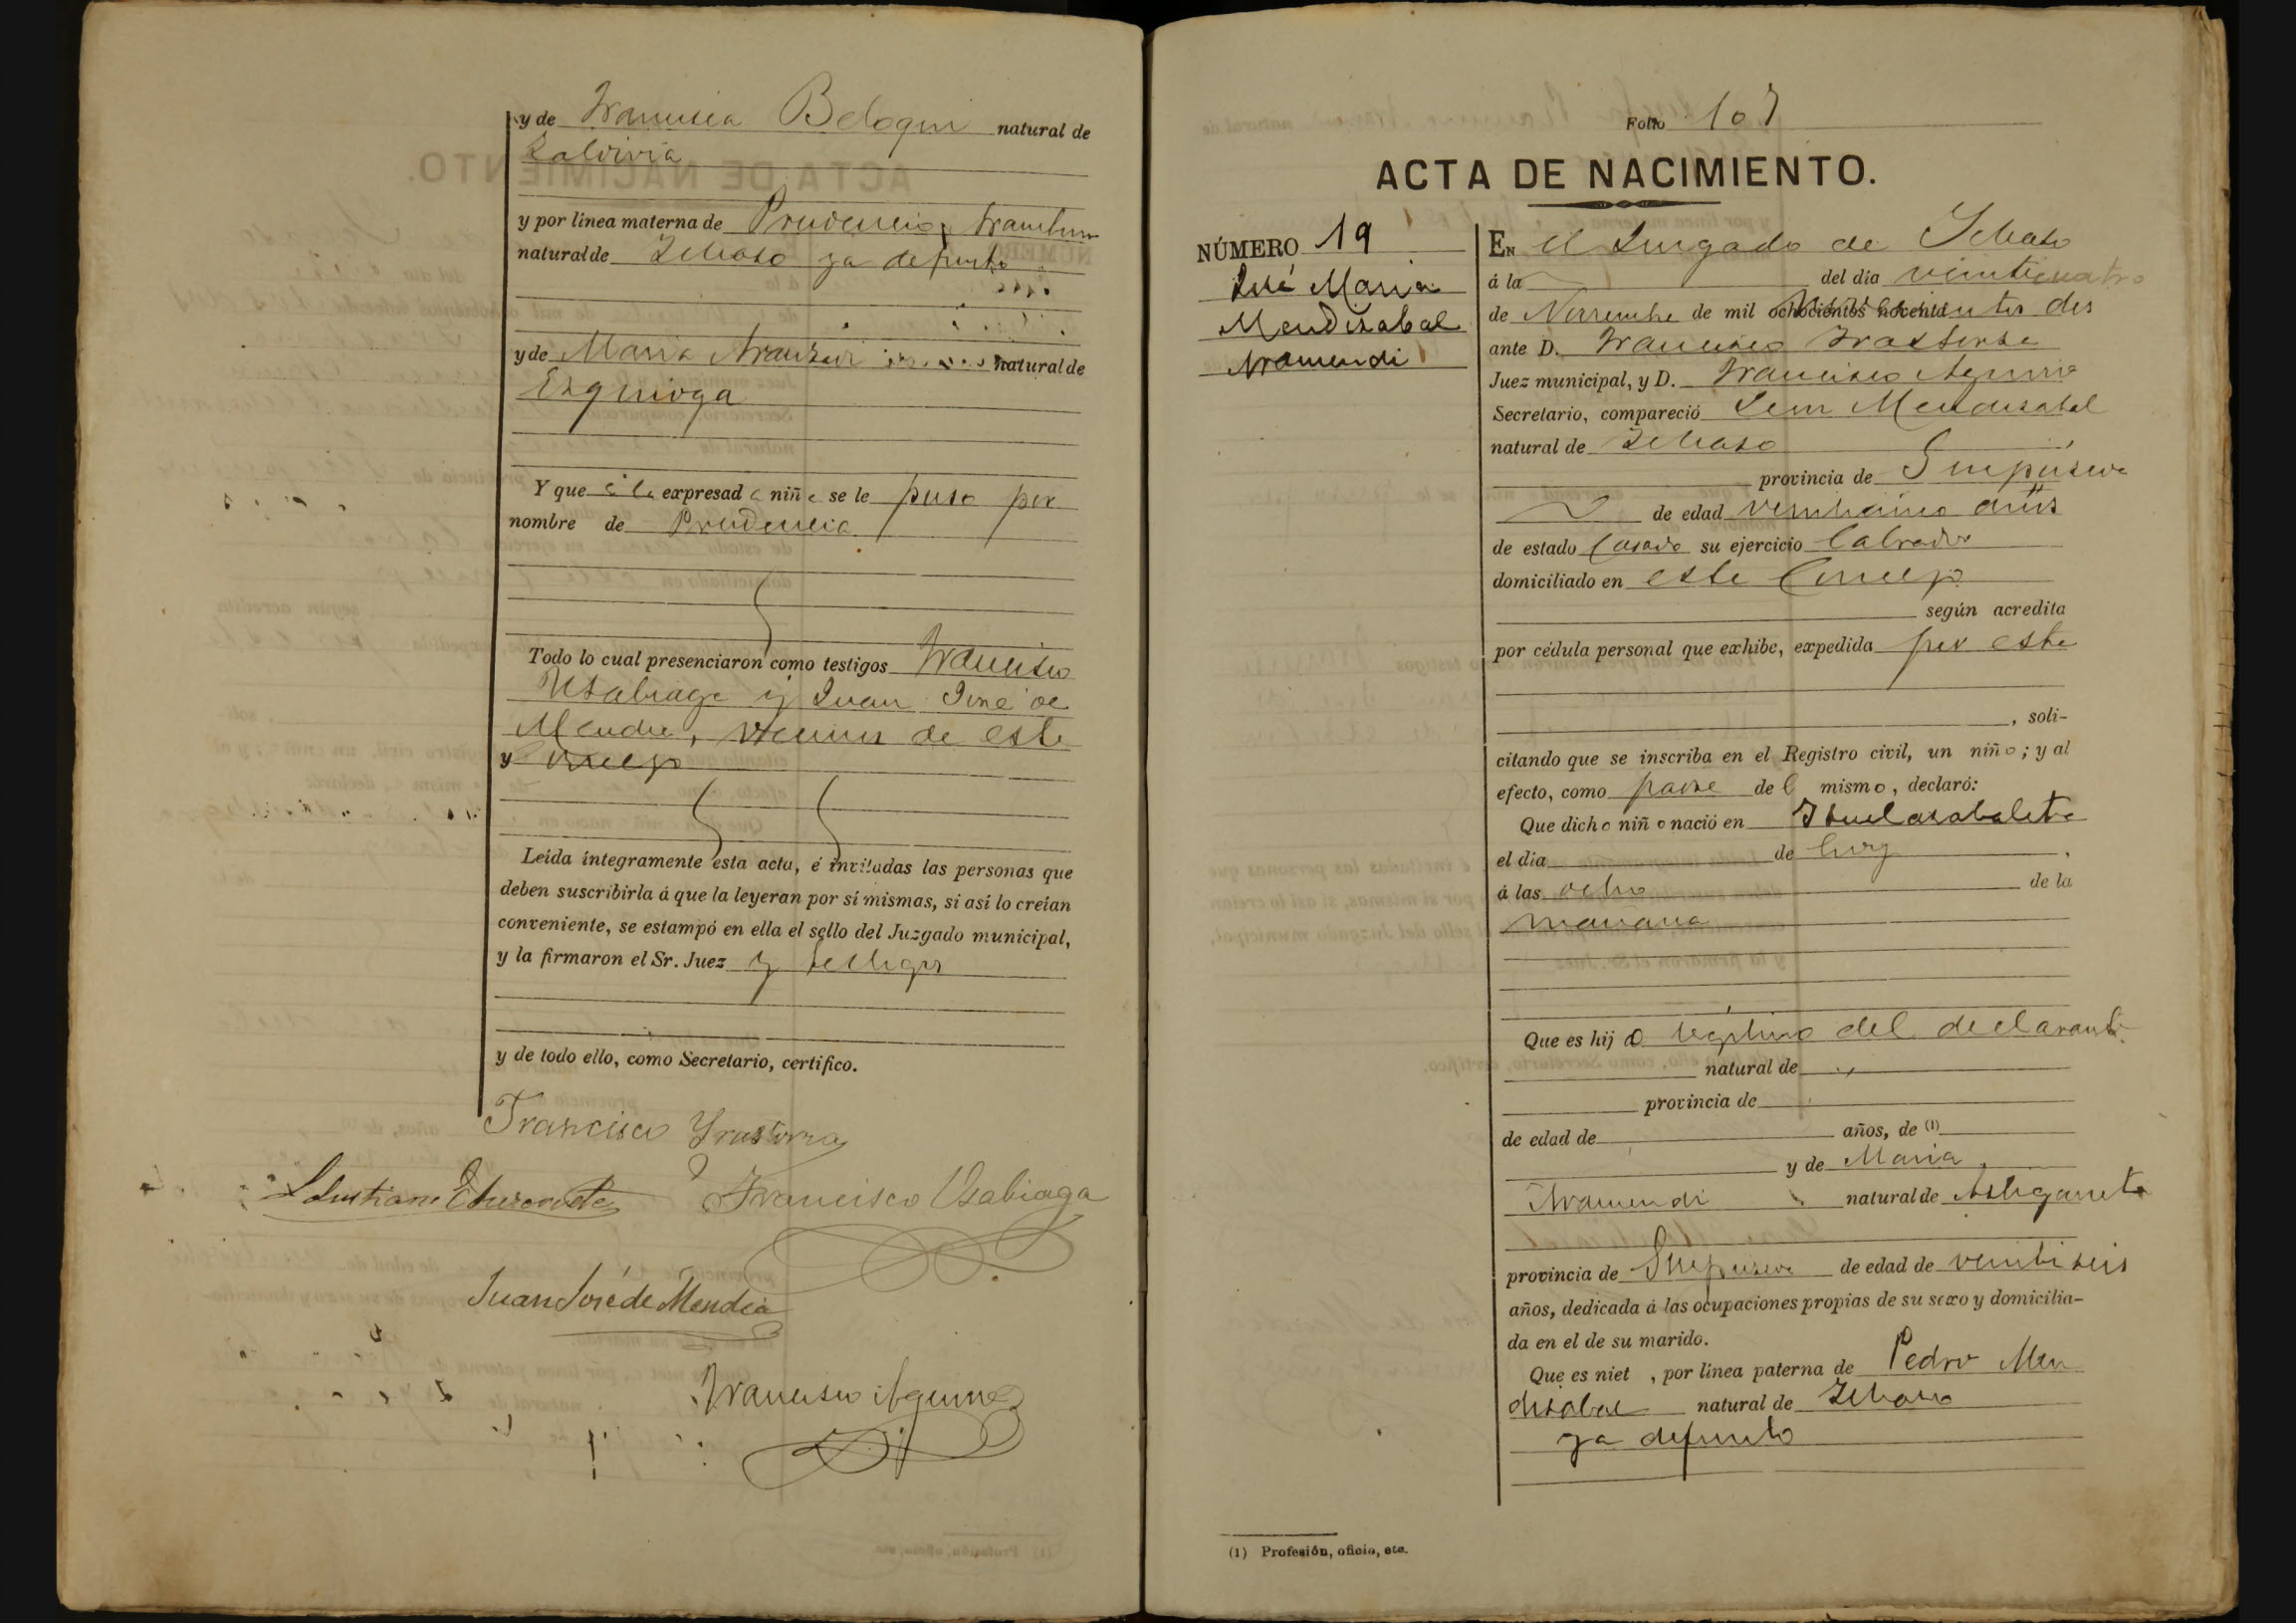 y de Francisca Beloqui natural de
Zaldivia
y por línea materna de Prudencio Aramburu
natural de Ichaso ya defunto
y de Maria Aranzadi natural de
Ezquioga
Y que á la expresada niña se le puso por
nombre de Prudencia
Todo lo cual presenciaron como testigos Francisco
Usabiaga y Juan José de
Mendia, vecinos de este
y Concejo
Leída íntegramente esta acta, é invitadas las personas que
deben suscribirla á que la leyeran por sí mismas, si así lo creían
conveniente, se estampó en ella el sello del Juzgado municipal,
y la firmaron el Sr. Juez y testigos
y de todo ello, como Secretario, certifico.
Francisco Yrastorza
Francisco Usabiaga
Juan José de Mendia
Francisco Aguirre
Folio 107
ACTA DE NACIMIENTO.
NÚMERO 19
José Maria
Mendizabal
Aramendi
EN el Juzgado de Ichaso
á la del día veinticuatro
de Noviembre de mil ochocientos noventa dos
ante D. Francisco Irastorza
Juez municipal, y D. Francisco Aguirre
Secretario, compareció Mendizabal
natural de Ichaso
provincia de Guipúzcoa
de edad veinticinco años
de estado Casado su ejercicio labrador
domiciliado en este Concejo
según acredita
por cédula personal que exhibe, expedida por este
, soli-
citando que se inscriba en el Registro civil, un niño; y al
efecto, como padre del mismo, declaró:
Que dicho niño nació en
el día de hoy
á las ocho de la
mañana
Que es hijo legítimo del declarante
natural de
provincia de
de edad de años, de (1)
y de Maria
Aramendi natural de Astigarreta
provincia de Guipuzcoa de edad de veintiseis
años, dedicada á las ocupaciones propias de su sexo y domicilia-
da en el de su marido.
Que es niet , por línea paterna de Pedro Men
dizabal natural de Ichaso
ya defunto
(1) Profesión, oficio, etc.